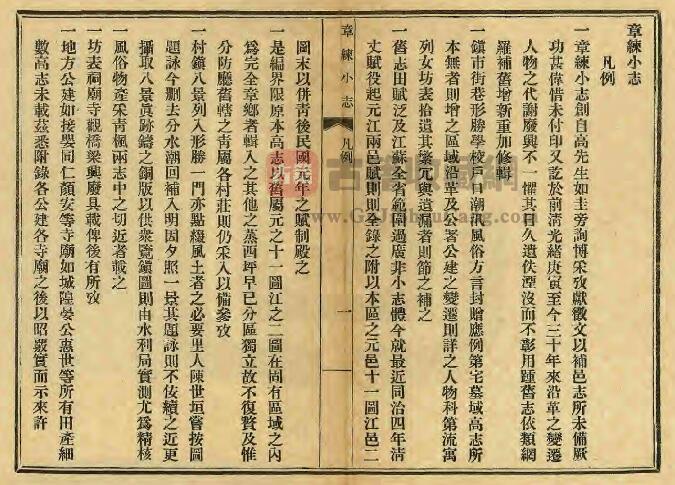 章練小志
凡例
一章練小志創自高先生如圭旁詢博采攷獻徵文以補邑志所未備厥
功甚偉惜未付印又訖於前淸光緖庚寅至今三十年來沿革之變遷
人物之代謝廢興不一懼其日久遺佚湮沒而不彰用踵舊志依類網
羅補舊增新重加修輯
一鎭市街巷形勝學校戶口潮汛風俗方言封贈應例第宅墓域高志所
本無者則增之區域沿革及公署公建之變遷則詳之人物科第流寓
列女坊表拾遺其繁冗與遺漏者則節之補之
一舊志田賦泛及江蘇全省範圍過廣非小志體今就最近同治四年淸
丈賦役起元江兩邑賦則則全錄之附以本區之元邑十一圖江邑二
章練小志
凡例
一
圖末以併靑後民國元年之賦制殿之
一是編界限原本高志以舊屬元之十一圖江之二圖在固有區域之內
爲完全章鄕者輯入之其他之蒸西坪早已分區獨立故不復贅及惟
分防廳舊轄之靑屬各村莊則仍采入以備參攷
一村鎭八景列入形勝一門亦點綴風土者之必要里人陳世垣嘗按圖
題詠今刪去分水潮回補入明因夕照一景其題詠則不佞續之近更
攝取八景眞跡鑄之銅版以供衆覽鎭圖則由水利局實測尤爲精核
一風俗物產采靑楓兩志中之切近者載之
一坊表祠廟寺觀橋梁興廢具載俾後有所攷
一地方公建如接嬰同仁顏安等寺廟如城隍晏公惠世等所有田產細
數高志未載茲悉附錄各公建各寺廟之後以昭嚴實而示來許
古籍收藏網
www.GujiShuCang.com